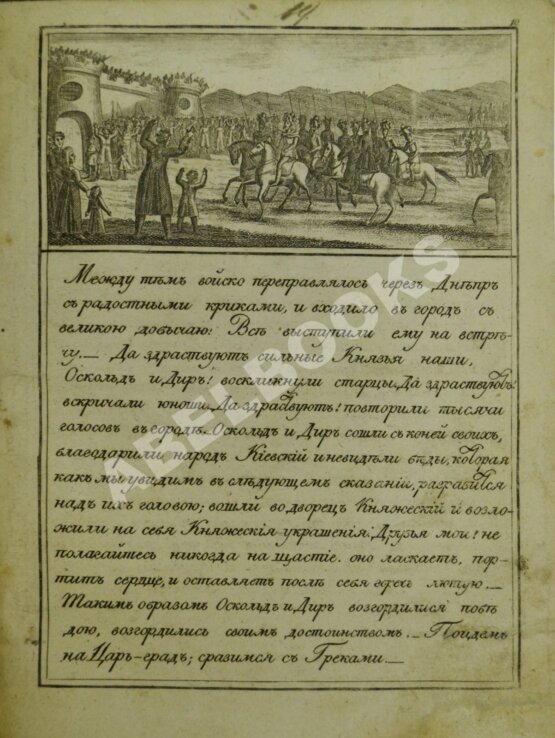 19.
19
Между тѣмъ войско переправлялось черезъ Днѣпръ
съ радостными криками, и входило въ городъ съ
великою добычаю! Всѣ выступили ему на встрѣ-
чу. — Да здраствуютъ сильные Князья наши,
Оскольдъ и Диръ! воскликнули старцы. Да здраствуютъ!
вскричали юноши. Да здраствуютъ! повторили тысячи
голосовъ въ городѣ. Оскольдъ и Диръ сошли съ коней своихъ,
благодарили народъ Кіевскій и невидѣли бѣды, которая
какъ мы увидимъ въ слѣдующемъ сказаніи, разразится
надъ ихъ головою; вошли во дворецъ Княжескій и возло-
жили на себя Княжескія украшенія. Друзья мои! не
полагайтесь никогда на щастіе. оно ласкаетъ, пор-
титъ сердце, и оставляетъ послѣ себя горесть лютую —
Такимъ образомъ Оскольдъ и Диръ возгордилися побѣ
дою, возгордились своимъ достоинствомъ. — Пойдемъ
на Царь-градъ; сразимся съ Греками. —
ABELBOOKS